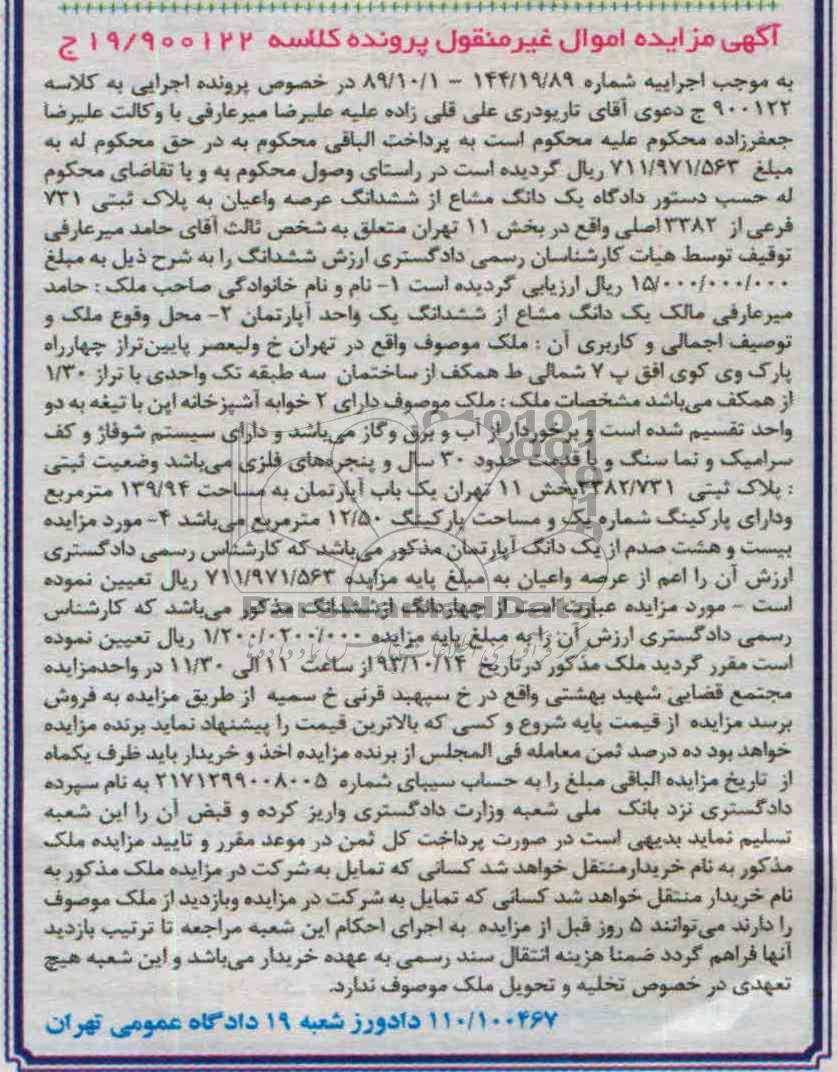 آگهی مزایده اموال غیرمنقول پرونده کلاسه ۱۹/۹۰۰۱۲۲ ج
به موجب اجراییه شماره ۱۴۴/۱۹/۸۹ – ۸۹/۱۰/۱ در خصوص پرونده اجرایی به کلاسه
۹۰۰۱۲۲ ج دعوی آقای تاریودری علی قلی زاده علیه علیرضا میرعارفی با وکالت علیرضا
جعفرزاده محکوم علیه محکوم است به پرداخت الباقی محکوم به در حق محکوم له به
مبلغ ۷۱۱/۹۷۱/۵۶۳ ریال گردیده است در راستای وصول محکوم به و با تقاضای محکوم
له حسب دستور دادگاه یک دانگ مشاع از ششدانگ عرصه واعیان به پلاک ثبتی ۷۳۱
فرعی از ۳۳۸۲ اصلی واقع در بخش ۱۱ تهران متعلق به شخص ثالث آقای حامد میرعارفی
توقیف توسط هیات کارشناسان رسمی دادگستری ارزش ششدانگ را به شرح ذیل به مبلغ
۱۵/۰۰۰/۰۰۰/۰۰۰ ریال ارزیابی گردیده است ۱- نام و نام خانوادگی صاحب ملک : حامد
میرعارفی مالک یک دانگ مشاع از ششدانگ یک واحد آپارتمان ۲- محل وقوع ملک و
توصیف اجمالی و کاربری آن : ملک موصوف واقع در تهران خ ولیعصر پایین‌تراز چهارراه
پارک وی کوی افق پ ۷ شمالی ط همکف از ساختمان سه طبقه تک واحدی با تراز ۱/۳۰
از همکف می‌باشد مشخصات ملک : ملک موصوف دارای ۲ خوابه آشپزخانه اپن با تیغه به دو
واحد تقسیم شده است و برخوردار از آب و برق وگاز می‌باشد و دارای سیستم شوفاژ و کف
سرامیک و نما سنگ و با قدمت حدود ۳۰ سال و پنجره‌های فلزی می‌باشد وضعیت ثبتی
: پلاک ثبتی ۳۳۸۲/۷۳۱بخش ۱۱ تهران یک باب آپارتمان به مساحت ۱۳۹/۹۴ مترمربع
ودارای پارکینگ شماره یک و مساحت پارکینگ ۱۲/۵۰ مترمربع می‌باشد ۴- مورد مزایده
بیست و هشت صدم از یک دانگ آپارتمان مذکور می‌باشد که کارشناس رسمی دادگستری
ارزش آن را اعم از عرصه واعیان به مبلغ پایه مزایده ۷۱۱/۹۷۱/۵۶۳ ریال تعیین نموده
است – مورد مزایده عبارت است از چهاردانگ ازششدانگ مذکور می‌باشد که کارشناس
رسمی دادگستری ارزش آن را به مبلغ پایه مزایده ۱/۲۰۰/۰۲۰۰/۰۰۰ ریال تعیین نموده
است مقرر گردید ملک مذکور درتاریخ ۹۳/۱۰/۱۴ از ساعت ۱۱ الی ۱۱/۳۰ در واحدمزایده
مجتمع قضایی شهید بهشتی واقع در خ سپهبد قرنی خ سمیه از طریق مزایده به فروش
برسد مزایده از قیمت پایه شروع و کسی که بالاترین قیمت را پیشنهاد نماید برنده مزایده
خواهد بود ده درصد ثمن معامله فی المجلس از برنده مزایده اخذ و خریدار باید ظرف یکماه
از تاریخ مزایده الباقی مبلغ را به حساب سیبای شماره ۲۱۷۱۲۹۹۰۰۸۰۰۵ به نام سپرده
دادگستری نزد بانک ملی شعبه وزارت دادگستری واریز کرده و قبض آن را این شعبه
تسلیم نماید بدیهی است در صورت پرداخت کل ثمن در موعد مقرر و تایید مزایده ملک
مذکور به نام خریدارمنتقل خواهد شد کسانی که تمایل به شرکت در مزایده ملک مذکور به
نام خریدار منتقل خواهد شد کسانی که تمایل به شرکت در مزایده وبازدید از ملک موصوف
را دارند می‌توانند ۵ روز قبل از مزایده به اجرای احکام این شعبه مراجعه تا ترتیب بازدید
آنها فراهم گردد ضمنا هزینه انتقال سند رسمی به عهده خریدار می‌باشد و این شعبه هیچ
تعهدی در خصوص تخلیه و تحویل ملک موصوف ندارد.
۱۱۰/۱۰۰۴۶۷ دادورز شعبه ۱۹ دادگاه عمومی تهران
ParsNamadData